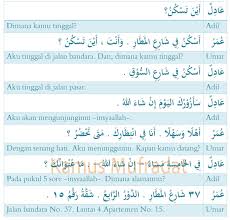 عَادِلٌ أَيْنَ تَسْكُنُ؟
Dimana kamu tinggal? Adil
عُمَرُ أَسْكُنُ فِي شَارِعِ المَطَارِ . وَأَنْتَ ، أَيْنَ تَسْكُنُ؟
Aku tinggal di jalan bandara. Dan, dimana kamu tinggal? Umar
عَادِلٌ أَسْكُنُ فِي شَارِعِ السُّوْقِ .
Aku tinggal di jalan pasar. Adil
عَادِلٌ سَأَزُوْرُكَ اليَوْمَ إِنْ شَاءَ اللهُ .
Aku akan mengunjungimu –insyaallah–. Adil
عُمَرُ أَهْلًا وَسَهْلًا . أَنَا فِي انْتِظَارِكَ . مَتَى تَحْضُرُ ؟
Dengan senang hati. Aku menunggumu. Kapan kamu datang? Umar
عَادِلٌ فِي الخَامِسَةِ مَسَاءً إِنْ شَاءَ اللهُ . مَا عُنْوَانُكَ ؟
Pada pukul 5 sore –insyaallah–. Dimana alamatmu? Adil
عُمَرُ ٣٧ شَارِعُ المَطَارِ . الدَّوْرُ الرَّابِعُ . شَقَّةُ رَقْمُ ١٥ .
Jalan bandara No. 37. Lantai 4 Apartemen No. 15. Umar
Kamus Mufradat